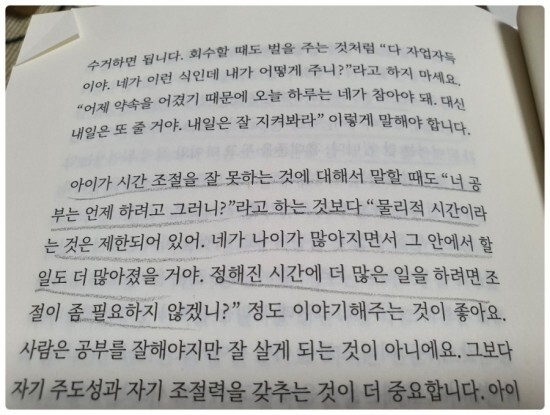 수거하면 됩니다. 회수할 때도 벌을 주는 것처럼 “다 자업자득
이야. 네가 이런 식인데 내가 어떻게 주니?”라고 하지 마세요.
“어제 약속을 어겼기 때문에 오늘 하루는 네가 참아야 돼. 대신
내일은 또 줄 거야. 내일은 잘 지켜봐라” 이렇게 말해야 합니다.
아이가 시간 조절을 잘 못하는 것에 대해서 말할 때도 “너 공
부는 언제 하려고 그러니?”라고 하는 것보다 “물리적 시간이라
는 것은 제한되어 있어. 네가 나이가 많아지면서 그 안에서 할
일도 더 많아졌을 거야. 정해진 시간에 더 많은 일을 하려면 조
절이 좀 필요하지 않겠니?” 정도 이야기해주는 것이 좋아요.
사람은 공부를 잘해야지만 잘 살게 되는 것이 아니에요. 그보다
자기 주도성과 자기 조절력을 갖추는 것이 더 중요합니다. 아이